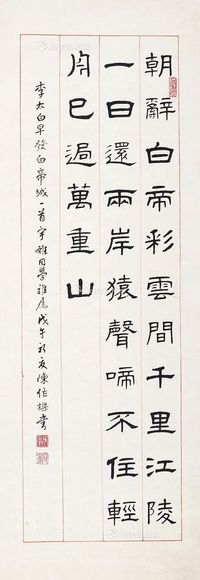 朝辭白帝彩雲間千里江陵
一日還兩岸猿聲啼不住輕
舟已過萬重山
李太白早發白帝城一首 同學雅屬戊午初夏陳佐 書